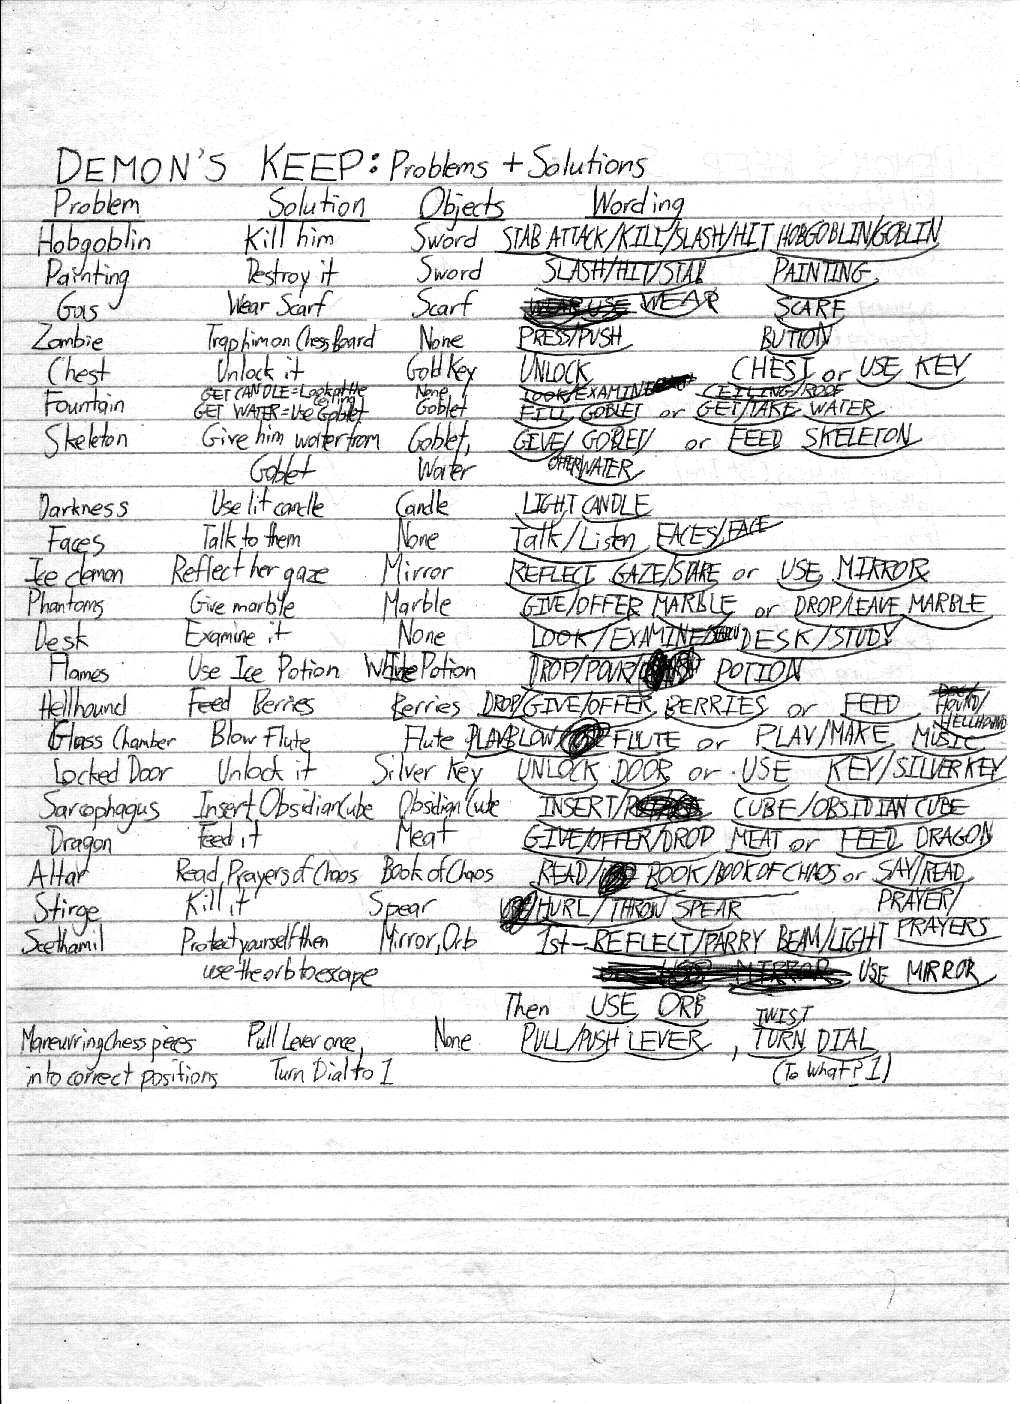 DEMON'S KEEP: Problems + Solutions
Problem Solution Objects Wording
Hobgoblin Kill him Sword STAB ATTACK/KILL/SLASH/HIT HOBGOBLIN/GOBLIN
Painting Destroy it Sword SLASH/HIT/STAB PAINTING
Gas Wear Scarf Scarf WEAR USE WEAR SCARF
Zombie Trap him on Chess Board None PRESS/PUSH BUTTON
Chest Unlock it Gold Key UNLOCK CHEST or USE KEY
GET CANDLE=Look at the ceiling None LOOK/EXAMINE CEILING/ROOF
Fountain GET WATER=Use Goblet Goblet FILL GOBLET or GET/TAKE WATER
Skeleton Give him water from Goblet, GIVE/GOBLET/ or FEED SKELETON
Goblet Water OFFER/WATER
Darkness Use lit candle Candle LIGHT CANDLE
Faces Talk to them None Talk/Listen FACES/FACE
Ice demon Reflect her gaze Mirror REFLECT GAZE/STARE or USE MIRROR
Phantoms Give marble Marble GIVE/OFFER MARBLE or DROP/LEAVE MARBLE
Desk Examine it None LOOK/EXAMINE DESK/STUDY
Flames Use Ice Potion White Potion DROP/POUR/ POTION
Hellhound Feed Berries Berries DROP/GIVE/OFFER BERRIES or FEED HOUND/
HELLHOUND
Glass Chamber Blow Flute Flute PLAY/BLOW FLUTE or PLAY/MAKE MUSIC
Locked Door Unlock it Silver Key UNLOCK DOOR or USE KEY/SILVER KEY
Sarcophagus Insert Obsidian Cube Obsidian Cube INSERT/ CUBE/OBSIDIAN CUBE
Dragon Feed it Meat GIVE/OFFER/DROP MEAT or FEED DRAGON
Altar Read Prayers of Chaos Book of Chaos READ/ BOOK/BOOK OF CHAOS or SAY/READ
Stirge Kill it Spear HURL/THROW SPEAR PRAYER/
Seethamil Protect yourself then Mirror, Orb 1st-REFLECT/PARRY BEAM/LIGHT PRAYERS
use the orb to escape MIRROR USE MIRROR
Then USE ORB
TWIST
Maneuvring chess pieces Pull Lever once, None PULL/PUSH LEVER, TURN DIAL
into correct positions Turn Dial to 1 (To What? 1)